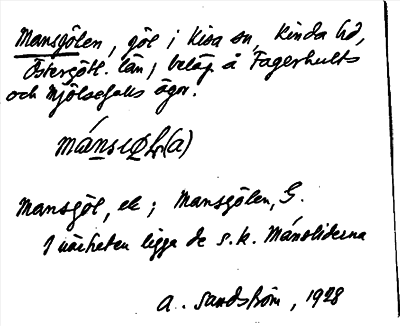 Mansgölen, göl i Kisa sn, Kinda hd,
Östergötl. län, beläg. å Fagerhults
och Mjölsefalls ägor.
Mansgöl, ek ; Mansgölen, G.
I närheten ligga de s.k. Månsliderna
A. Sandström, 1928